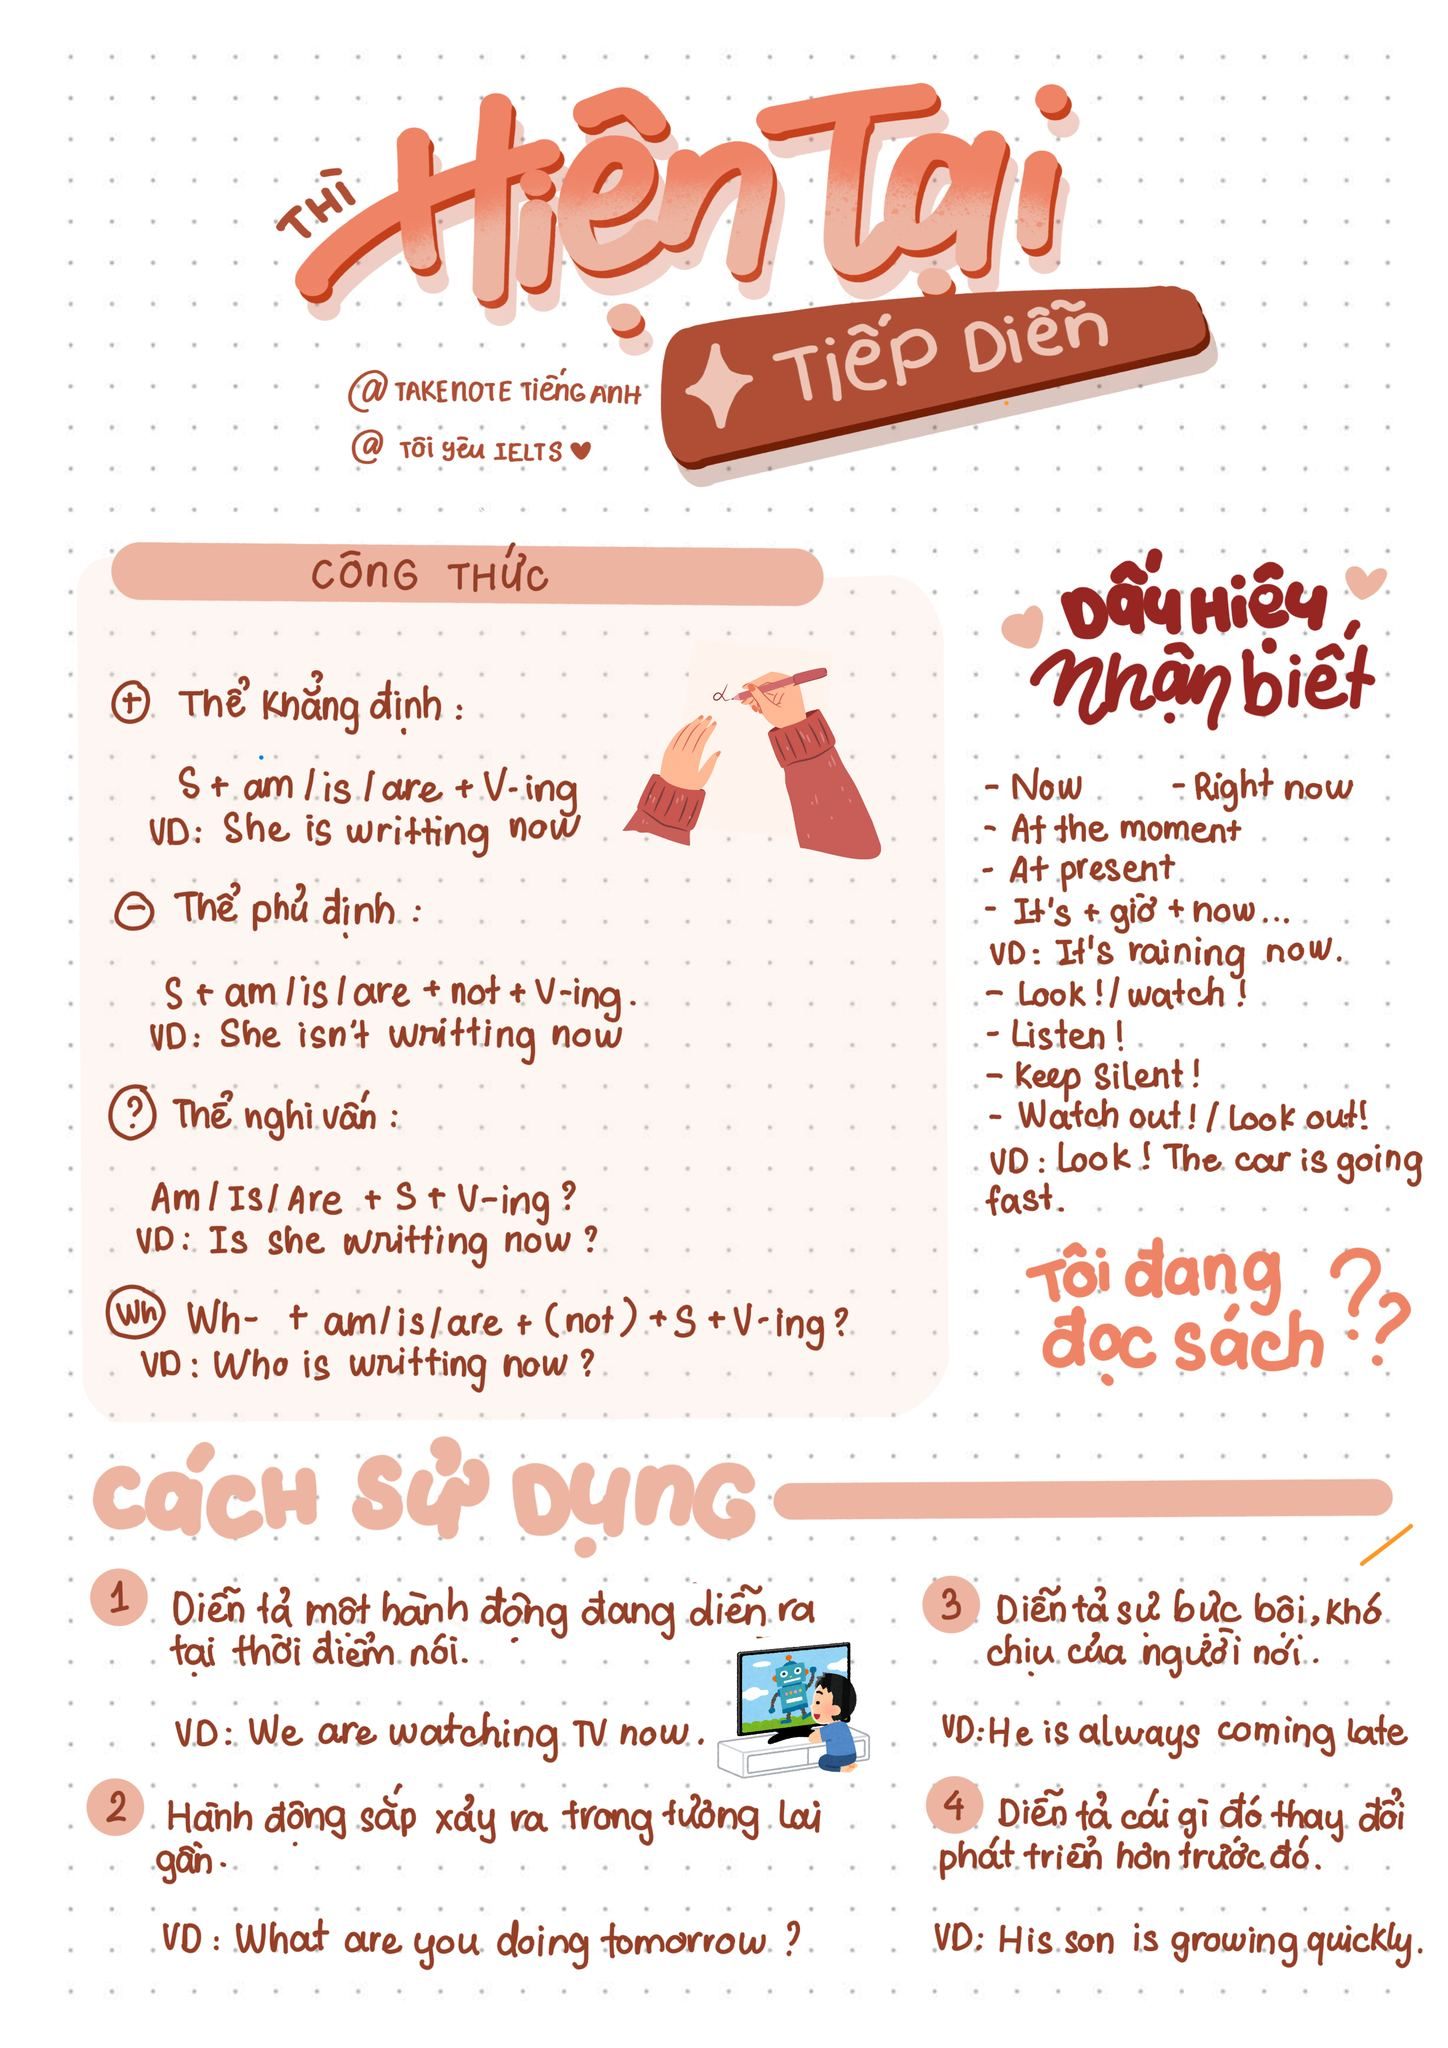 THÌ
Hiện Tại
Tiếp Diễn
@ TAKENOTE Tiếng ANH
@ Tôi yêu IELTS
CÔNG THỨC
+ Thể khẳng định :
S + am / is / are + V-ing
VD: She is writting now
- Thể phủ định :
S + am / is / are + not + V-ing.
VD: She isn't writting now
? Thể nghi vấn :
Am / Is / Are + S + V-ing ?
VD: Is she writting now ?
Wh Wh- + am / is / are + (not) + S + V-ing ?
VD: Who is writting now ?
Dấu Hiệu
Nhận biết
- Now - Right now
- At the moment
- At present
- It's + giờ + now...
VD: It's raining now.
- Look! / watch!
- Listen!
- Keep silent!
- Watch out! / Look out!
VD: Look! The car is going
fast.
Tôi đang
đọc sách ??
CÁCH SỬ DỤNG
1 Diễn tả một hành động đang diễn ra
tại thời điểm nói.
VD: We are watching TV now.
2 Hành động sắp xảy ra trong tương lai
gần.
VD: What are you doing tomorrow ?
3 Diễn tả sự bực bội, khó
chịu của người nói.
VD: He is always coming late
4 Diễn tả cái gì đó thay đổi
phát triển hơn trước đó.
VD: His son is growing quickly.